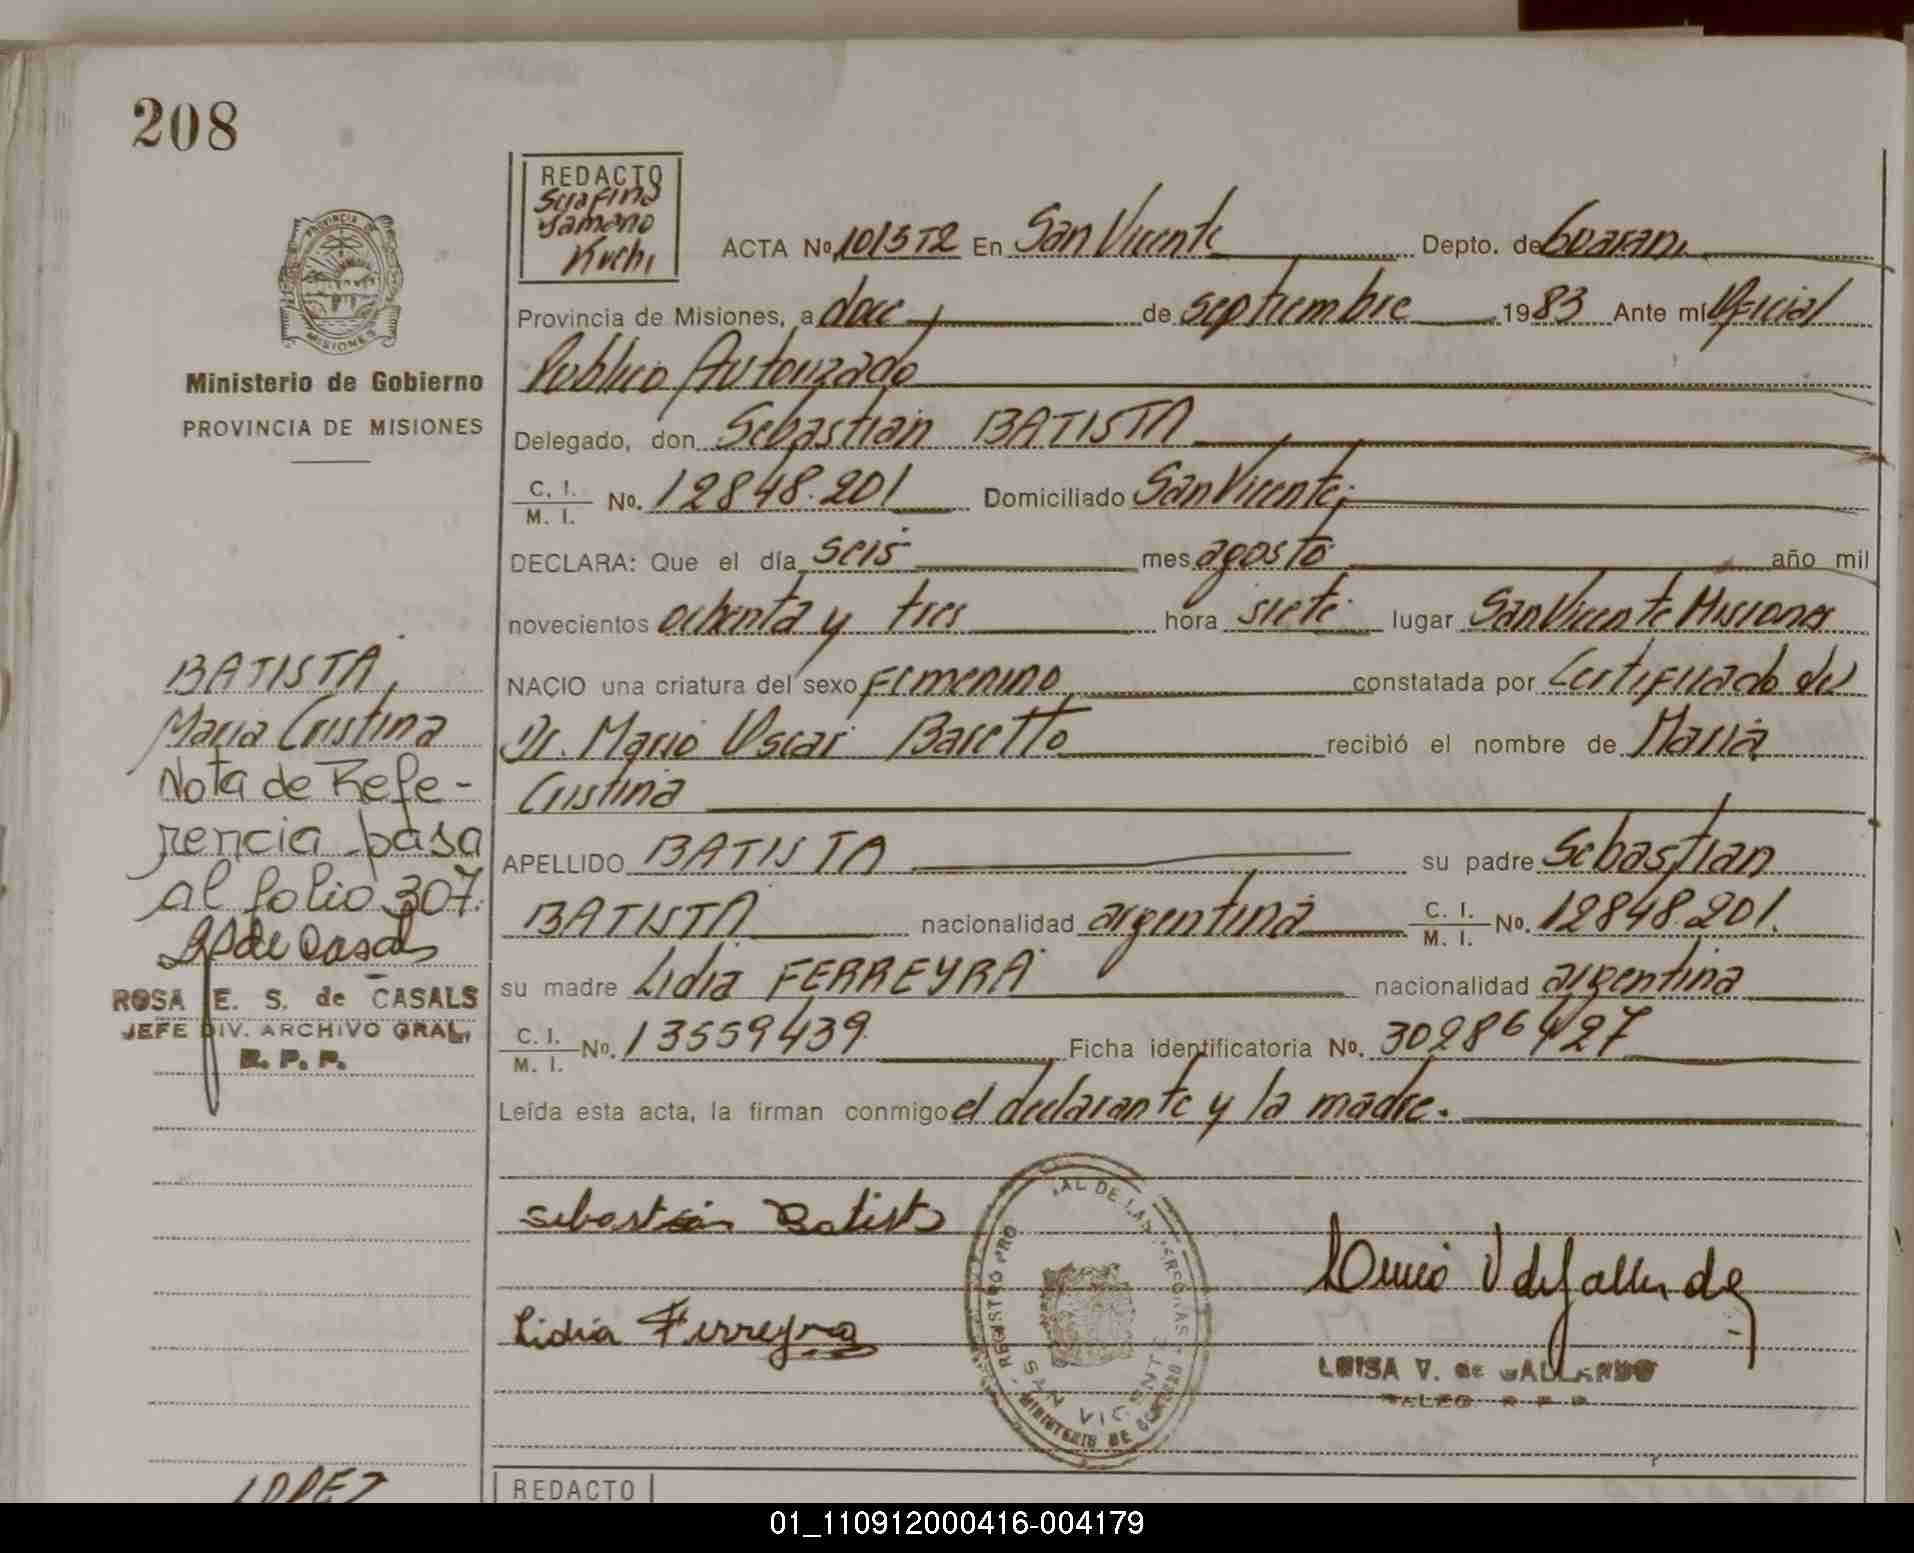 208
REDACTO
Yamano
Kuchi
ACTA No. 101372 En San Vicente Depto. de Guarani
PROVINCIA DE MISIONES
Provincia de Misiones, a doce de septiembre 1983 Ante mí Oficial
Publico Autorizado
Ministerio de Gobierno
PROVINCIA DE MISIONES
Delegado, don Sebastian BATISTA
C. I.
M. I. No. 12848.201 Domiciliado San Vicente;
DECLARA: Que el día seis mes agosto año mil
novecientos ochenta y tres hora siete lugar San Vicente Misiones
NACIO una criatura del sexo Femenino constatada por Certificado del
Dr. Mario Oscar Baretto recibió el nombre de Maria
Cristina
APELLIDO BATISTA su padre Sebastian
BATISTA nacionalidad argentina C. I. M. I. No. 12848.201.
su madre Lidia FERREYRA nacionalidad argentina
C. I.
M. I. No. 13559439 Ficha identificatoria No. 30286427
Leída esta acta, la firman conmigo el declarante y la madre.
BATISTA,
Maria Cristina
Nota de Refe-
rencia pasa
al folio 307.
ROSA E. S. de CASALS
JEFE DIV. ARCHIVO GRAL.
R. P. P.
Sebastián Batista
Lidia Ferreyra
REGISTRO PRO AL DE LAS PERSONAS
SAN VICENTE
MINISTERIO DE GOBIERNO
LUISA V. de GALLARDO
R P P
LOPEZ
REDACTO
01_110912000416-004179